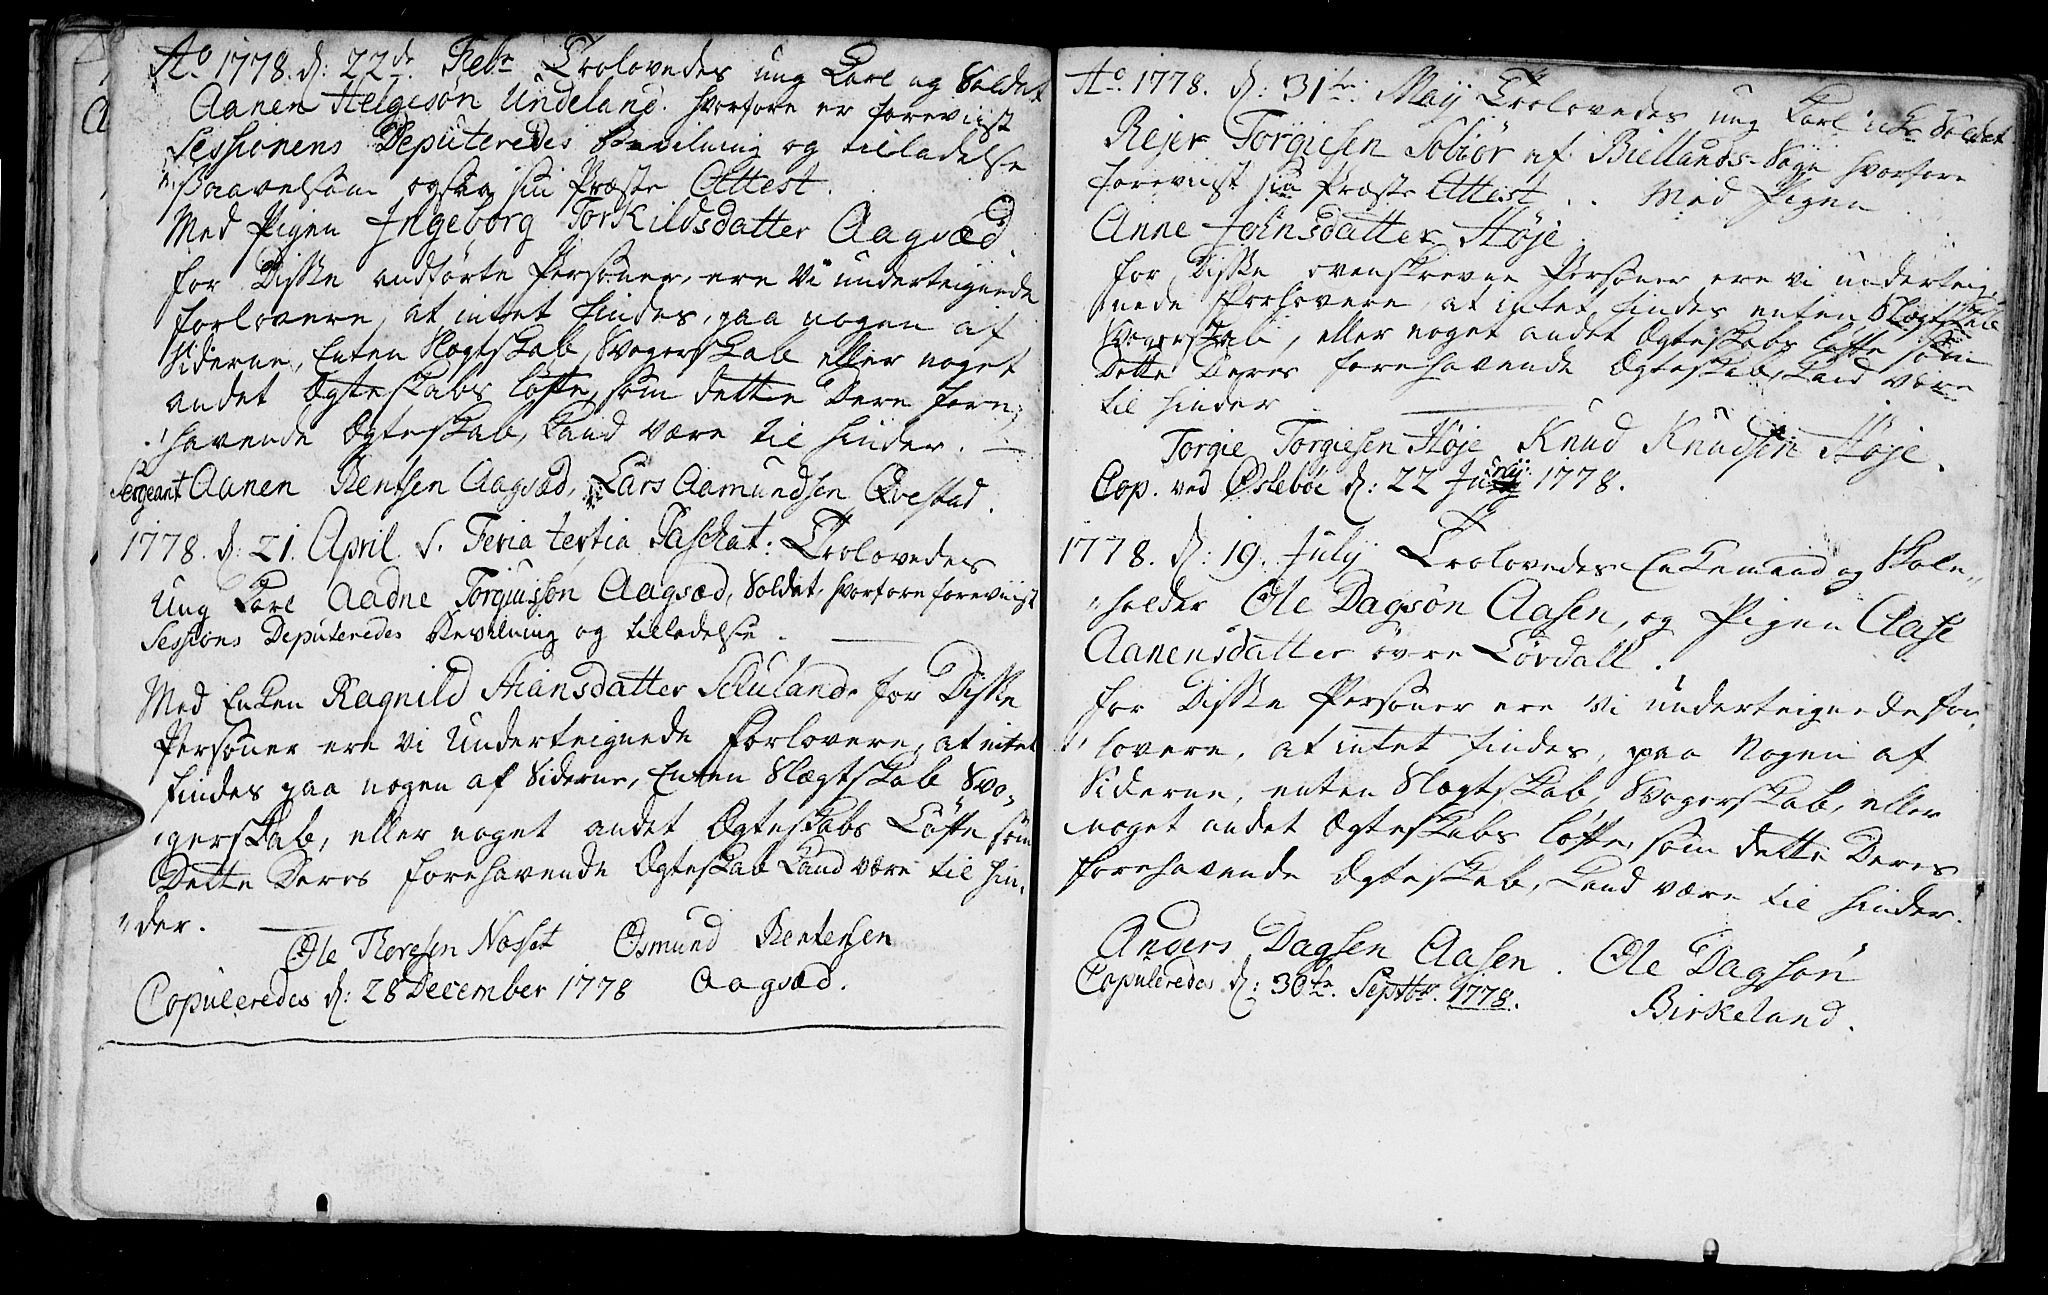 Ao 1778. d: 22de Febr Trolovedes ung Karl og Soldat
Aanen Helgesøn Undeland. hvorfore er foreviist
Sessionens Deputeredes Bevilning og tilladelse
saavelsom ogsaa sin Præstes Attest.
Med Pigen Ingeborg Torkildsdatter Aagsæd.
for Disse andførte Personer, ere Vi underteignede
forlovere, at intet findes, paa nogen af
Siderne, Enten Slægtskab, Svogerskab eller noget
andet Ægteskabs løfte, som dette Dere fore-
havende Ægteskab, kand være til hinder. —
Sergeant Aanen Bentsen Aagsæd, Lars Aamundsen Qvestad.
1778. d: 21. April. S. Feria tertia Paschat: Trolovedes
Ung Karl Aadne Torgiusson Aagsæd, Soldat, hvorfore foreviist
Sessions Deputeredes Bevilning og tilladelse.
Med Enken Ragnild Stiansdatter Schuland. for Disse
Personer ere Vi Underteignede Forlovere, at intet
findes paa nogen af Siderne, Enten Slægtskab Svo-
gerskab, eller noget andet Ægteskabs Løfte som
Dette Deres forehavende Ægteskab kand være til hin-
der.
Ole Thoresen Nosset Osmund Bentensen
Copuleredes d: 28 December 1778 Aagsæd.
Ao 1778. d: 31te Maij Trolovedes ung Karl Soldat
Rejer Torgiesen Sobiør af Biellands-Sogn hvorfore
foreviist sin Præstes Attest. . Med Pigen
Anne Johnsdatter Høje.
for Disse ovenskrevne Personer ere vi underteig-
nede forlovere, at intet findes enten Slægtskab
Svogerskab, eller noget andet Ægteskabs løfte som
Dette Deres forehavende Ægteskab, kand være
til hinder
Torgie Torgiesen Høje Knud Knudsen Høje.
Cop. ved Øslebøe d: 22 1778.
1778. d: 19. Julij Trolovedes Enkemand og Skole-
holder Ole Dagsøn Aasen, og Pigen Aase
Aanensdatter øvre Løvdall.
for Disse Personer ere Vi underteignede for-
lovere, at intet findes, paa Nogen af
Siderne, enten Slægtskab, Svogerskab, eller
noget andet Ægteskabs løfte, som dette Deres
forehavende Ægteskab, kand være til hinder.
Anders Dagsen Aasen. Ole Dagsøn
Copuleredes d: 30te Septbr. 1778.
Birkeland.